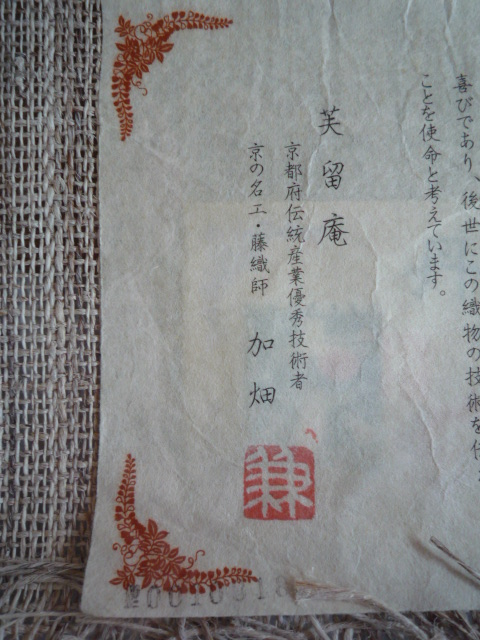 喜びであり、後世にこの織物の技術を伝
ことを使命と考えています。
芙留庵
京都府伝統産業優秀技術者
京の名工・藤織師 加畑
兼